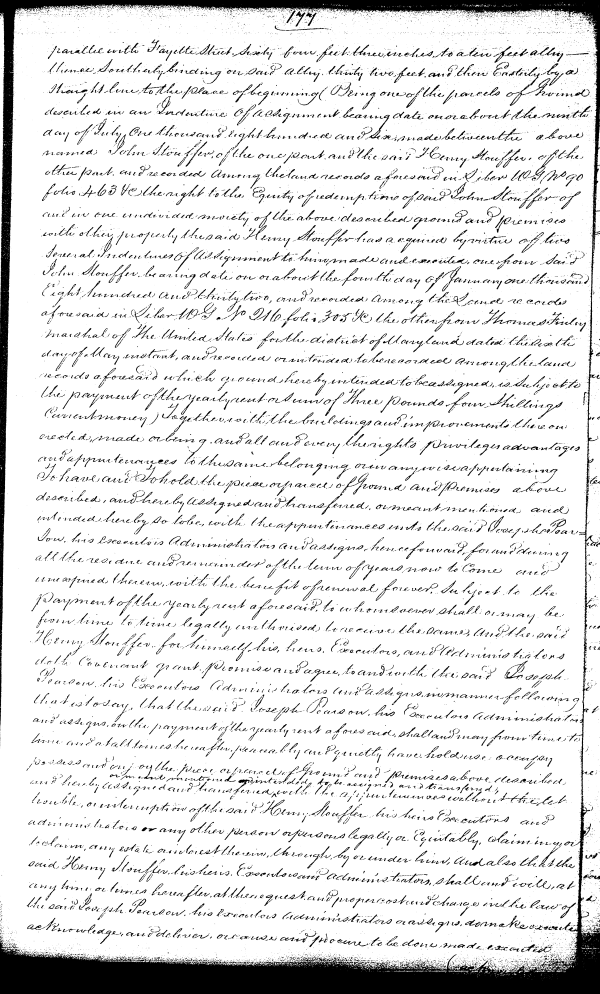 177
parallel with Fayette Street, Sixty four feet three inches, to a ten feet alley
thence Southerly binding on said Alley, thirty two feet, and then Easterly by a
straight line to the place of beginning (Being one of the parcels of Ground
described in an Indenture of Assignment bearing date on or about the ninth
day of July, One thousand eight hundred and Six, made between the above
named John Stouffer, of the one part, and the said Henry Stouffer, of the
other part, and recorded Among the land records aforesaid in Liber W G No 90
folio 463 &c the right to the Equity of redemption of said John Stouffer of
and in one undivided moiety of the above described ground and premises
with other property the said Henry Stouffer has acquired by virtue of two
several Indentures of Assignment to him made and executed, one from said
John Stouffer bearing date on or about the fourth day of January one thousand
Eight hundred and thirty two, and recorded Among the Land records
aforesaid in Liber W G No 216 folio 305 &c the other from Thomas Finley
Marshal of The United States for the district of Maryland dated the sixth
day of May instant, and recorded or intended to be recorded among the land
records aforesaid which ground hereby intended to be assigned, is Subject to
the payment of the yearly rent or sum of Three pounds four Shillings
Current money) Together with the buildings and improvements thereon
erected, made or being, and all and every the rights privileges advantages
and appurtenances to the same belonging or in any wise appertaining
To have and To hold the piece or parcel of Ground and Premises above
described, and hereby assigned and transferred, or meant mentioned and
intended hereby so to be, with the appurtenances unto the said Joseph Pear=
son, his executors Administrators and assigns, henceforward, for and during
all the residue and remainder of the term of years now to Come and
unexpired therein, with the benefit of renewal forever. Subject to the
payment of the yearly rent aforesaid, to whomsoever shall or may be
from time to time legally authorised to receive the same. And the said
Henry Stouffer, for himself, his, heirs, Executors, and Administrators
doth Covenant grant, promise and agree, to and with the said Joseph
Pearson, his Executors Administrators and assigns, in manner following
that is to say, that the said Joseph Pearson, his Executors Administrators
and assigns, on the payment of the yearly rent aforesaid, shall and may from time to
time and at all times hereafter, peaceably and quietly have hold use occupy
possess and enjoy the piece or parcel of Ground and premises above described
or meant mentioned or intended to be assigned and transferred,
and hereby assigned and transferred, with the appurtenances without the let
trouble, or interruption of the said Henry Stouffer his heirs Executors and
administrators or any other person or persons legally or Equitably, claiming or
to claim, any estate or interest therein, through, by or under him, And also that the
said Henry Stouffer, his heirs, Executors and administrators, shall and will, at
any time or times hereafter, at the request and proper cost and charge in the law of
the said Joseph Pearson, his executors administrators or assigns, do make execute
acknowledge, and deliver, or cause and procure to be done made executed